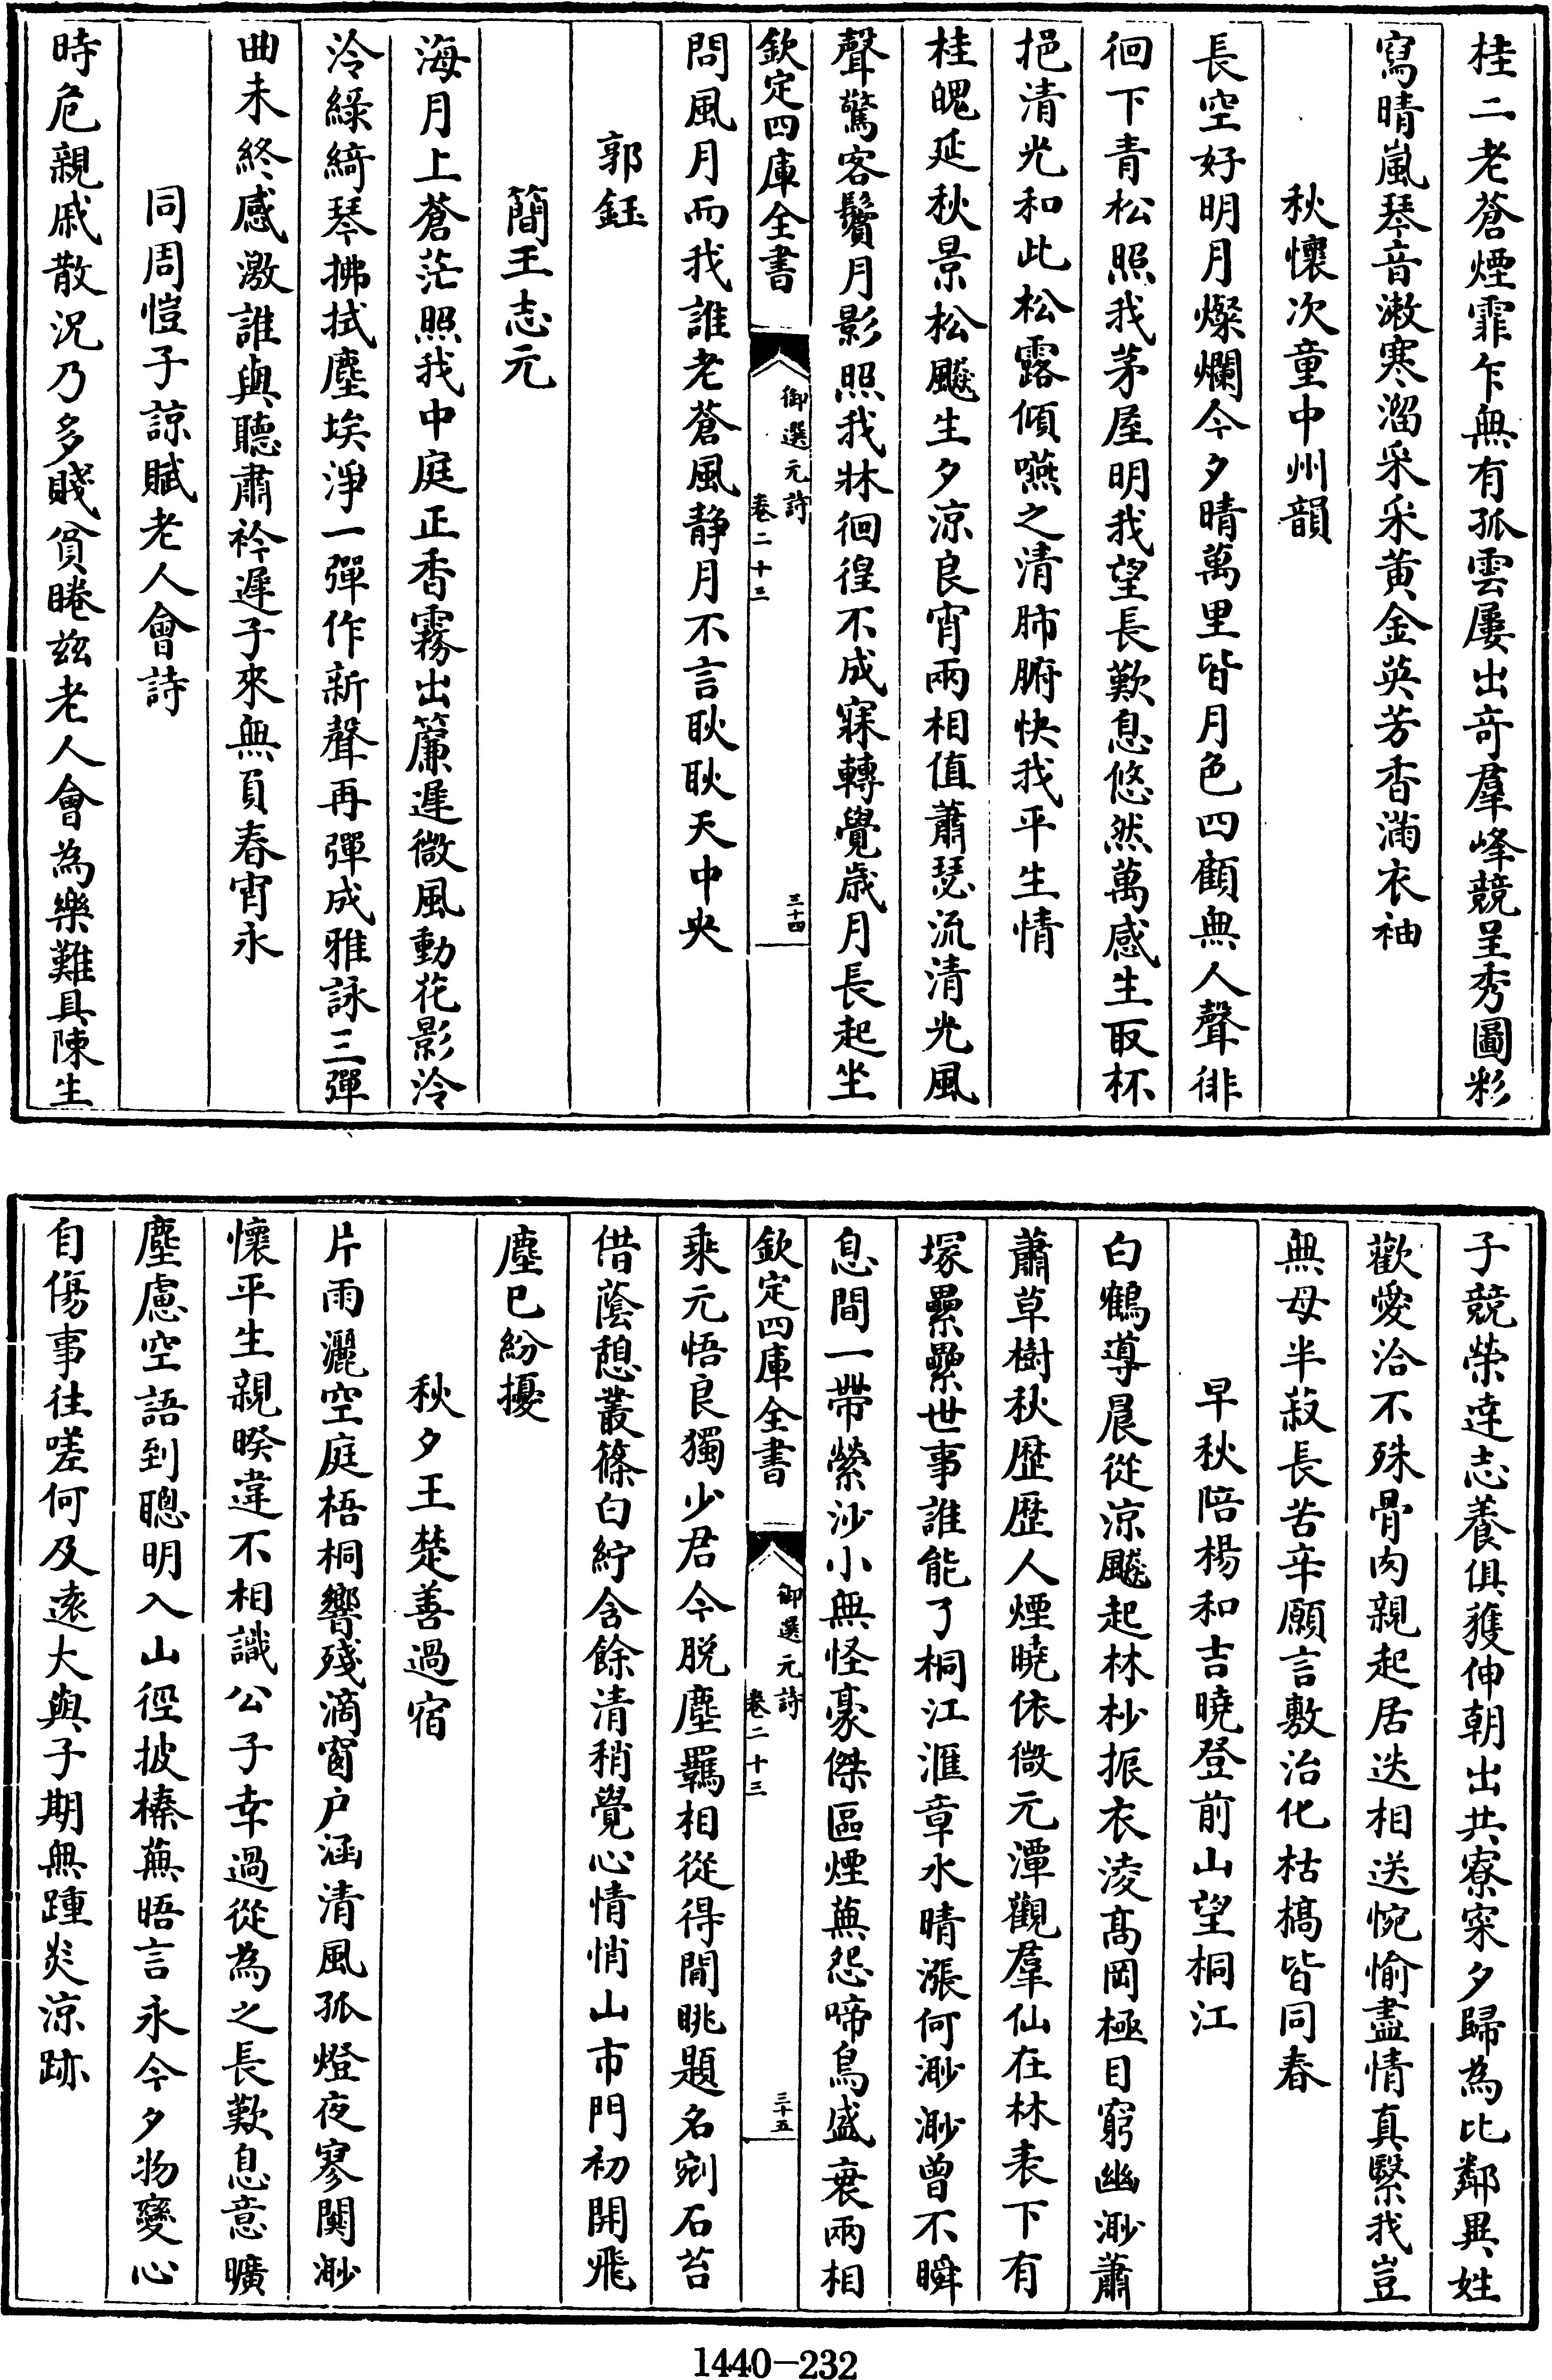 桂二老蒼煙霏乍無有孤雲屢出奇羣峰競呈秀圖彩
寫晴嵐琴音潄寒溜采采黄金英芳香滿衣袖
秋懷次童中州韻
長空好明月燦爛今夕晴萬里皆月色四顧無人聲徘
徊下青松照我茅屋明我望長歎息悠然萬感生取杯
挹清光和此松露傾嚥之清肺腑快我平生情
桂魄延秋景松飈生夕凉良宵兩相值蕭瑟流清光風
聲驚客鬢月影照我牀徊徨不成寐轉覺歳月長起坐
欽定四庫全書
御選元詩
卷二十三
三十四
問風月而我誰老蒼風静月不言耿耿天中央
郭鈺
簡王志元
海月上蒼茫照我中庭正香霧出簾遲微風動花影泠
泠綠綺琴拂拭塵埃淨一彈作新聲再彈成雅詠三彈
曲未終感激誰與聽肅衿遲子來無負春宵永
同周愷子諒賦老人會詩
時危親戚散況乃多賤貧睠兹老人會為樂難具陳生
子競榮達志養俱獲伸朝出共寮寀夕歸為比鄰異姓
歡愛洽不殊骨肉親起居迭相送惋愉盡情真緊我豈
無母半菽長苦辛願言敷治化枯槁皆同春
早秋陪楊和吉曉登前山望桐江
白鶴導晨從凉飈起林杪振衣淩高岡極目窮幽渺蕭
蕭草樹秋歴歴人煙曉依微元潭觀羣仙在林表下有
塚纍纍世事誰能了桐江滙章水晴漲何渺渺曾不瞬
息間一帶縈沙小無怪豪傑區煙蕪怨啼鳥盛衰兩相
欽定四庫全書
御選元詩
卷二十三
三十五
乘元悟良獨少君今脱塵羈相從得閒眺題名剜石苔
借蔭憩叢篠白紵含餘清稍覺心情悄山市門初開飛
塵已紛擾
秋夕王楚善過宿
片雨灑空庭梧桐響殘滴窗户涵清風孤燈夜寥闃渺
懷平生親睽違不相識公子幸過從為之長歎息意曠
塵慮空語到聰明入山徑披榛蕪晤言永今夕物變心
自傷事往嗟何及逺大與子期無踵炎凉跡
1440-232